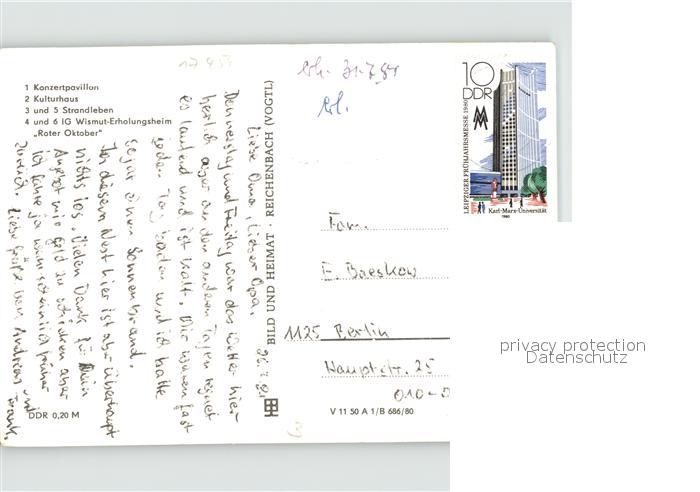 17453
Erh. 31.7.81
Erl.
1 Konzertpavillon
2 Kulturhaus
3 und 5 Strandleben
4 und 6 IG Wismut-Erholungsheim
„Roter Oktober"
26.7.81
Liebe Oma, Lieber Opa,
Donnerstag und Freitag war das Wetter hier
herlich aber an den anderen Tagen regnet
es laufend und ist kalt. Wir waren fast
jeden Tag baden und ich hatte
sogar einen Sonnenbrand.
In diesem Nest hier ist aber überhaupt
nichts los. Vielen Dank für Dein
Angebot mir Geld zu schicken aber
ich fahre ja wahrscheinlich früher
zurück. Liebe Grüße von Andreas und
Frank.
DDR 0,20 M
BILD UND HEIMAT · REICHENBACH (VOGTL)
V 11 50 A 1/B 686/80
10
DDR
MM
LEIPZIGER FRÜHJAHRSMESSE 1980
Karl-Marx-Universität
1980
Fam.
E. Baeskow
1125 Berlin
Hauptstr. 25
010-
privacy protection
Datenschutz